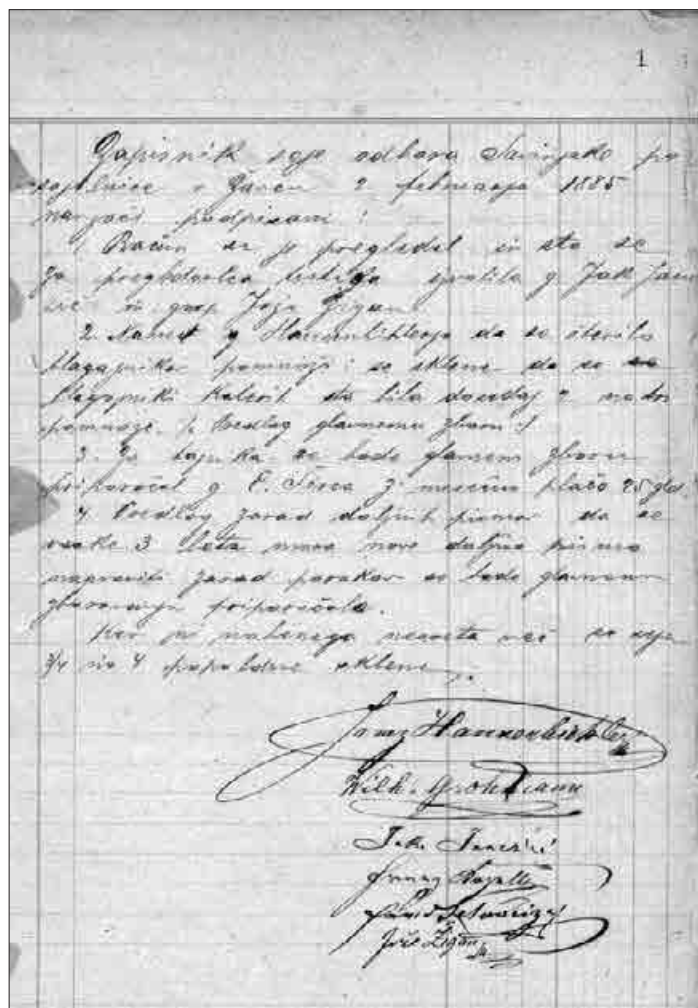 1
Zapisnik seje odbora Savinjske po
sojilnice v Žavcu 2 februarja 1885
navzoči podpisani :
1. Račun se je pregledal in sta se
za pregledovalca g. Jak. Jane
žič in gosp. Jože Žigan
2. Nasvet g. Hausenbichlerja da se število
blagajnikov pomnoži : se sklene da se
blagajniki sta bila dosedaj 2 na tri
pomnože. /: Predlog glavnemu zboru :/
3. Za tajnika se bode glavnem zboru
priporočal g. E. z mesečno plačo 25 gld
4. Predlog zarad dolžnih pisem da se
vsake 3 leta mora novo dolžno pismo
napraviti zarad porokov se bode glavnemu
zborovanju priporočalo.
Ker ni nobenega nasveta več se seja
3/4 na 4 popoldne sklene
Janez Hausenbichler
Wilh. Grohmann
Jak. Janežič
Franz
Jože Žigan